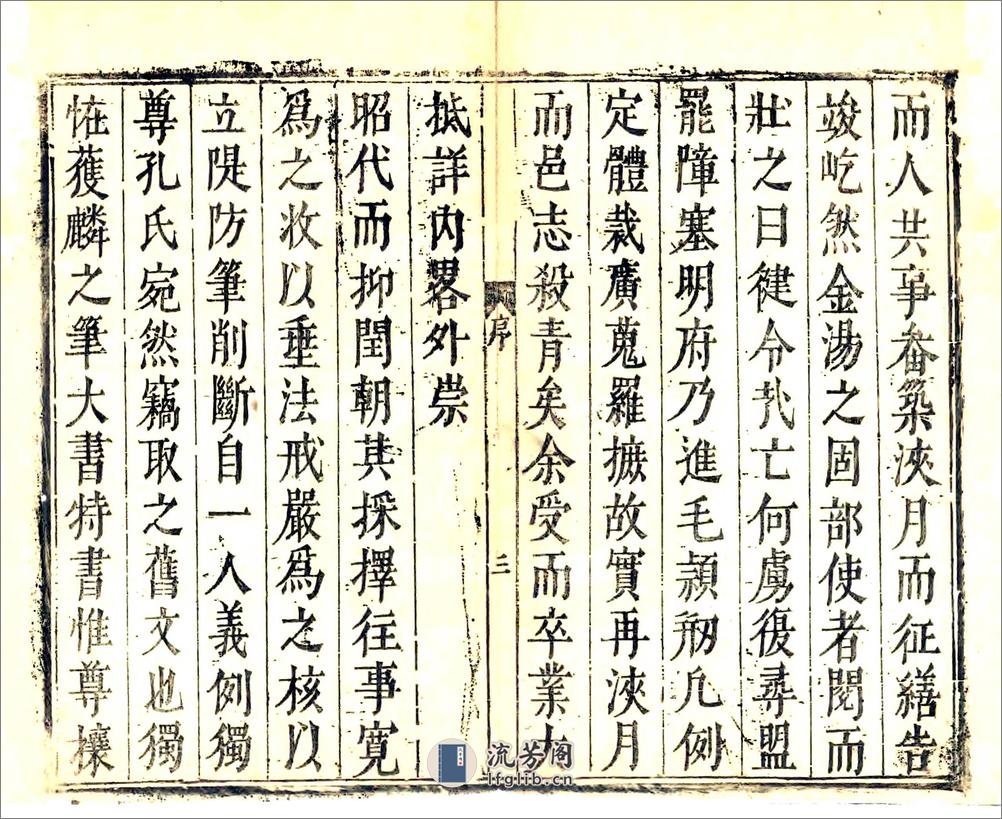 而人共事畚築浹月而征繕告
竣屹然金湯之固部使者閱而
壯之日健令犮亡何虜復尋盟
罷障塞明府乃進毛潁剏凡例
定體裁廣蒐羅摭故實再浹月
而邑志殺青矣余受而卒業大
序
三
抵詳內畧外崇
昭代而抑閏朝其採擇往事寛
爲之收以垂法戒嚴爲之核以
立隄防筆削斷自一人義例獨
尊孔氏宛然竊取之舊文也獨
恠蒦麟之筆大書特書惟尊攘
流芳阁
lfglib.cn